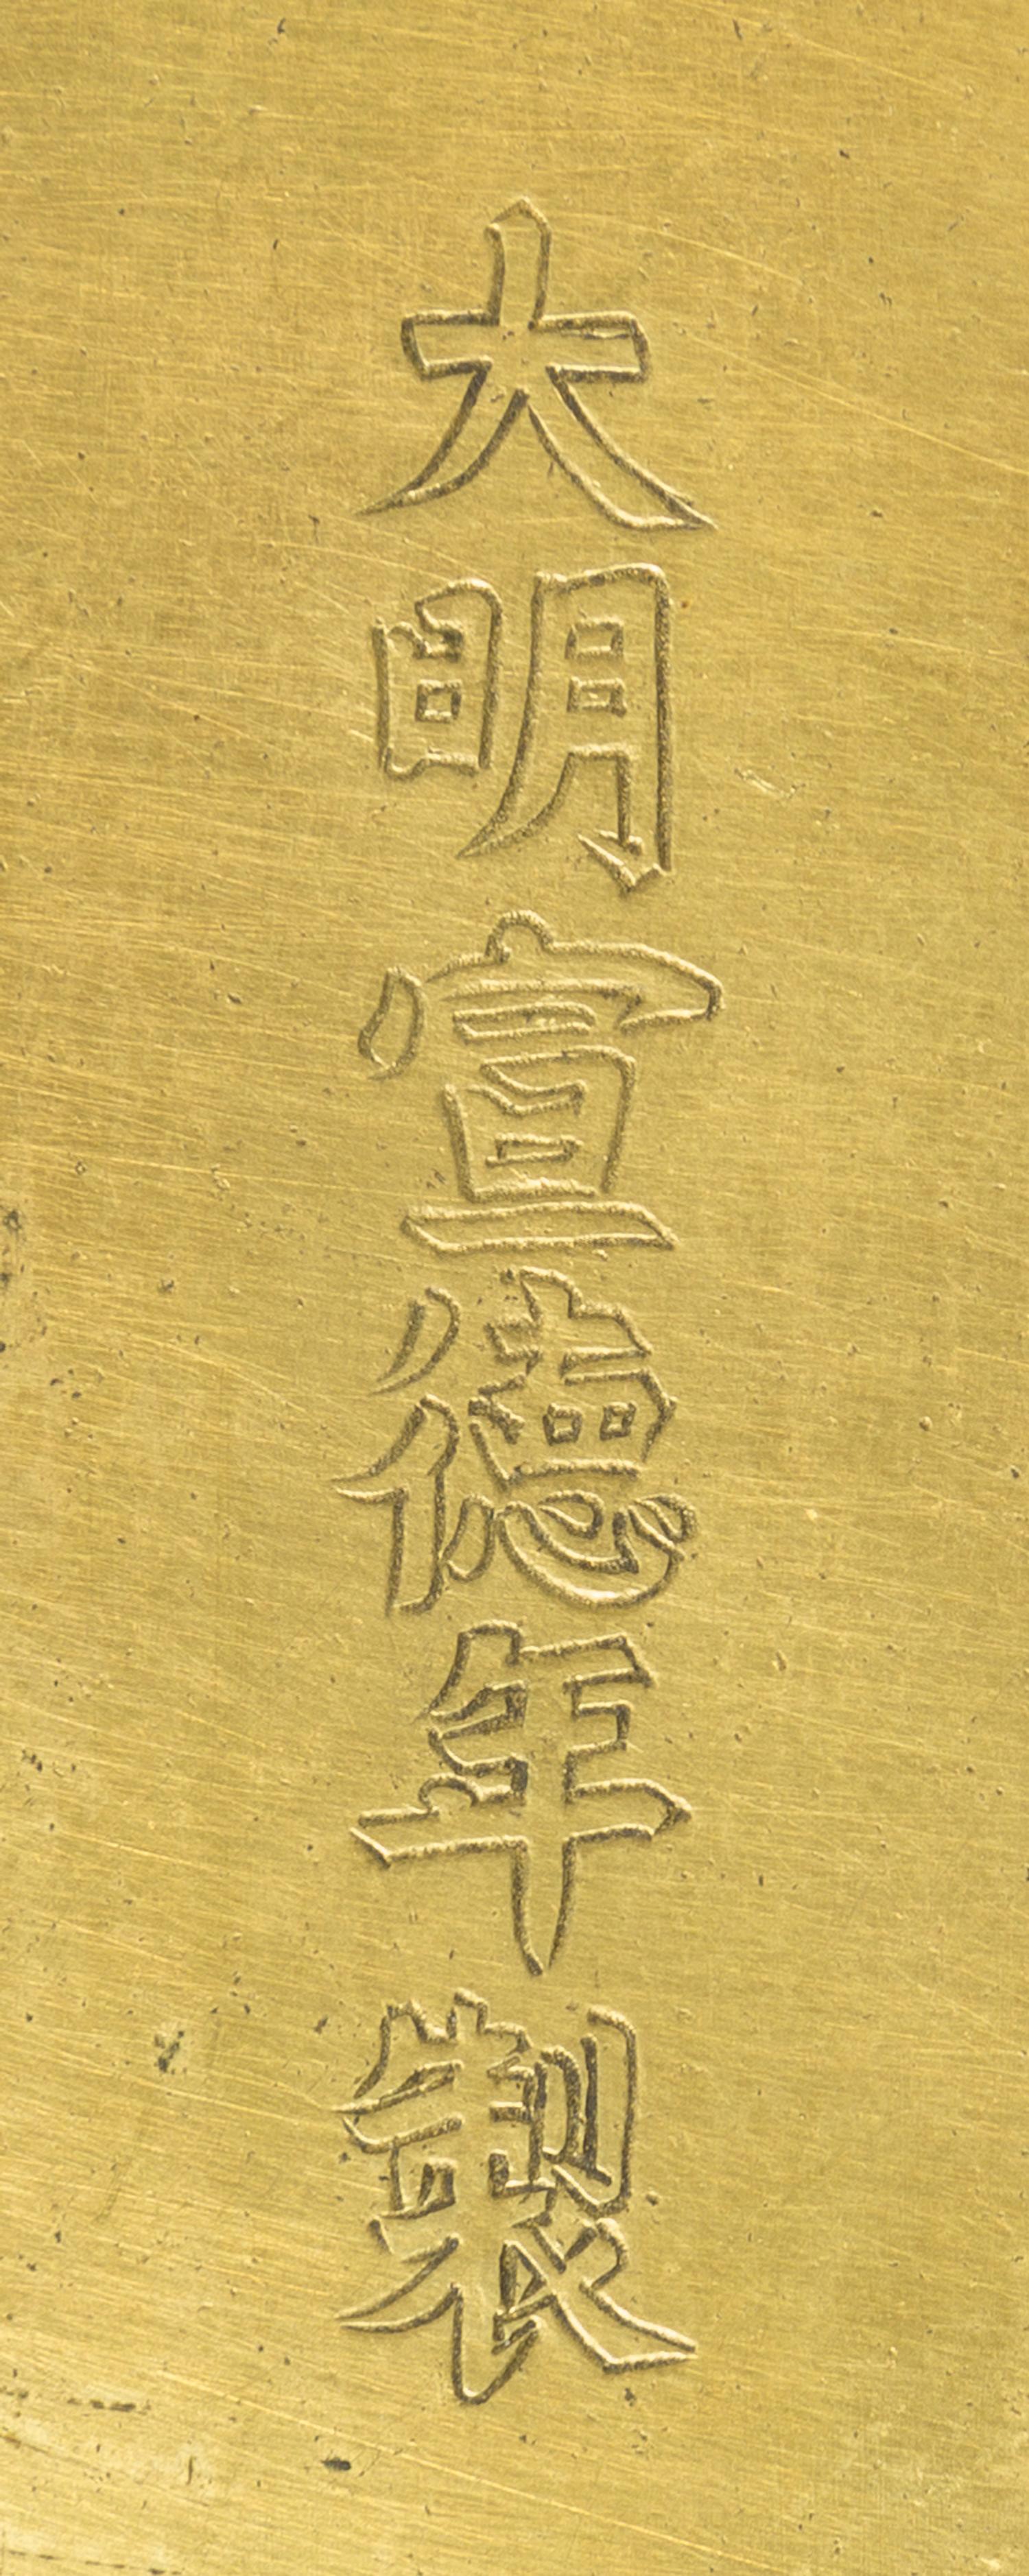 大明宣徳年製